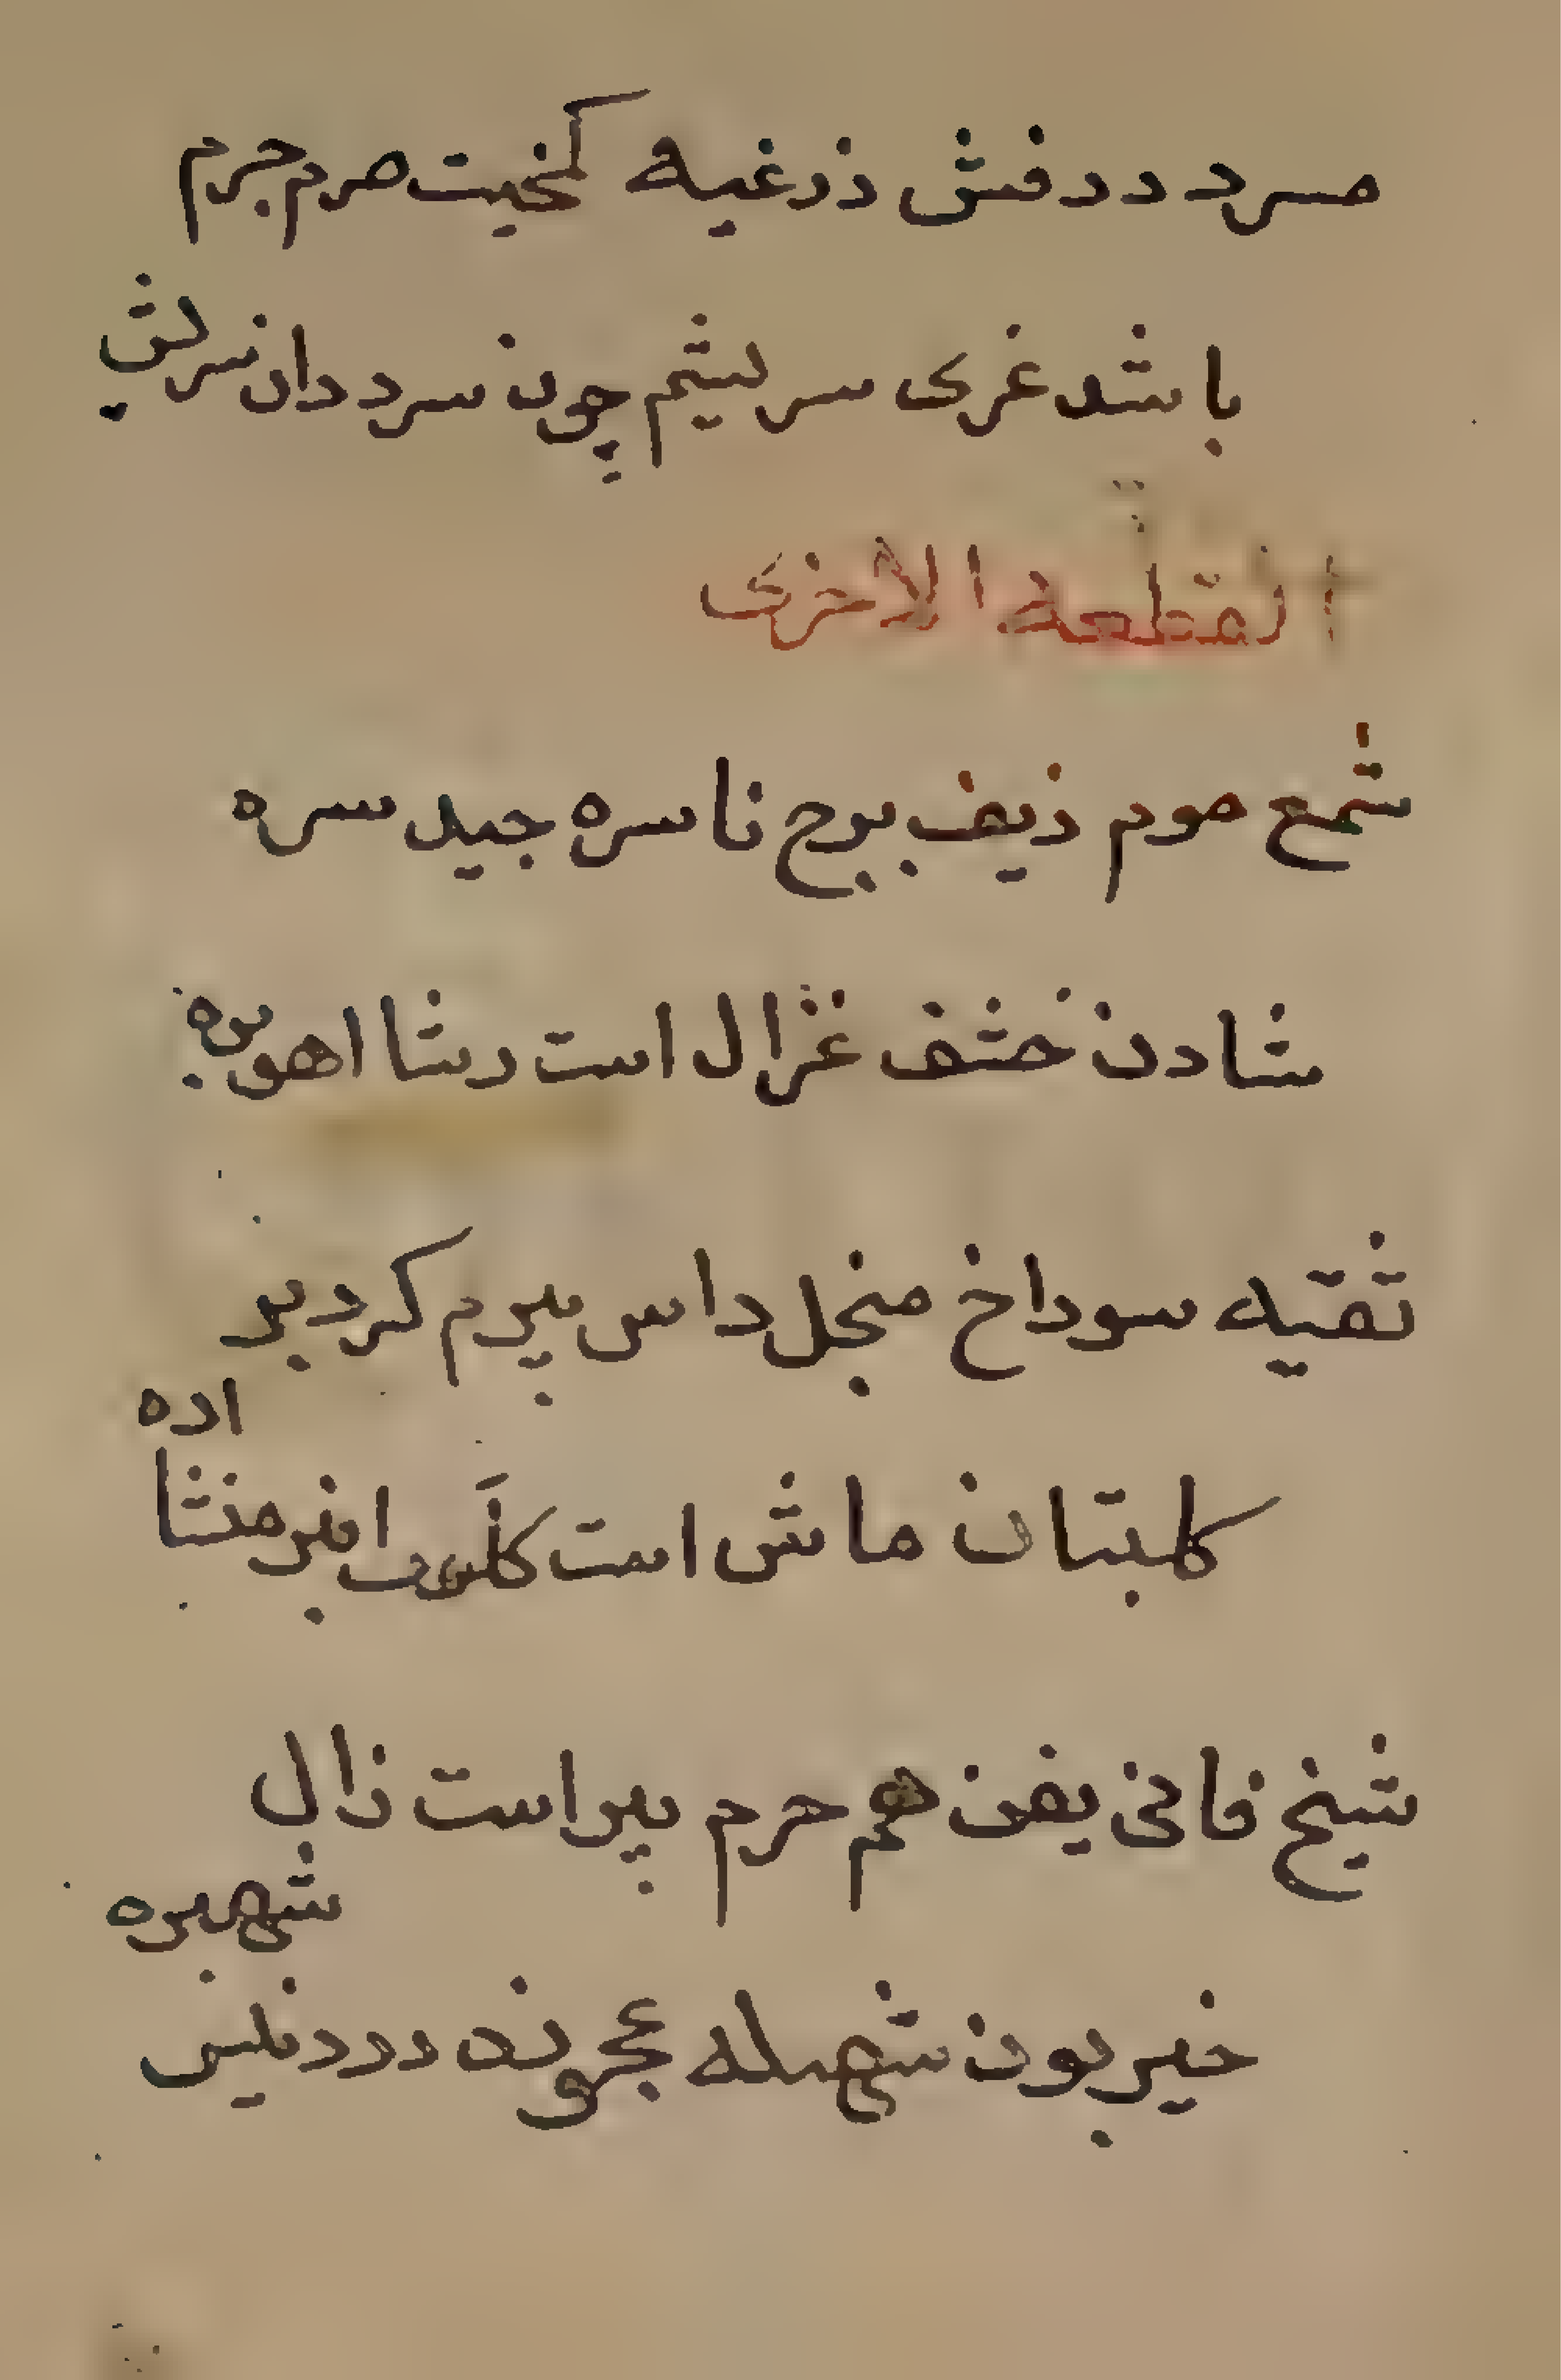 مسرد دد دفش دزدغیه کخیت صرم جرم
باشد غری سریشم چون سرد دان سریش
القطعة الأخرى
شمع موم زیف بوج ناسره جید سره
شادن خشف غزال است رشا اهو بره
ثقبه سوداخ منجل داس بیرم کرد بر
اده
کلبتان ماش است کلوب انبر منشا
شیخ فانی یفن هم حرم پیر است زال
شهبره
خیربون شهله عجوزه دردنیس